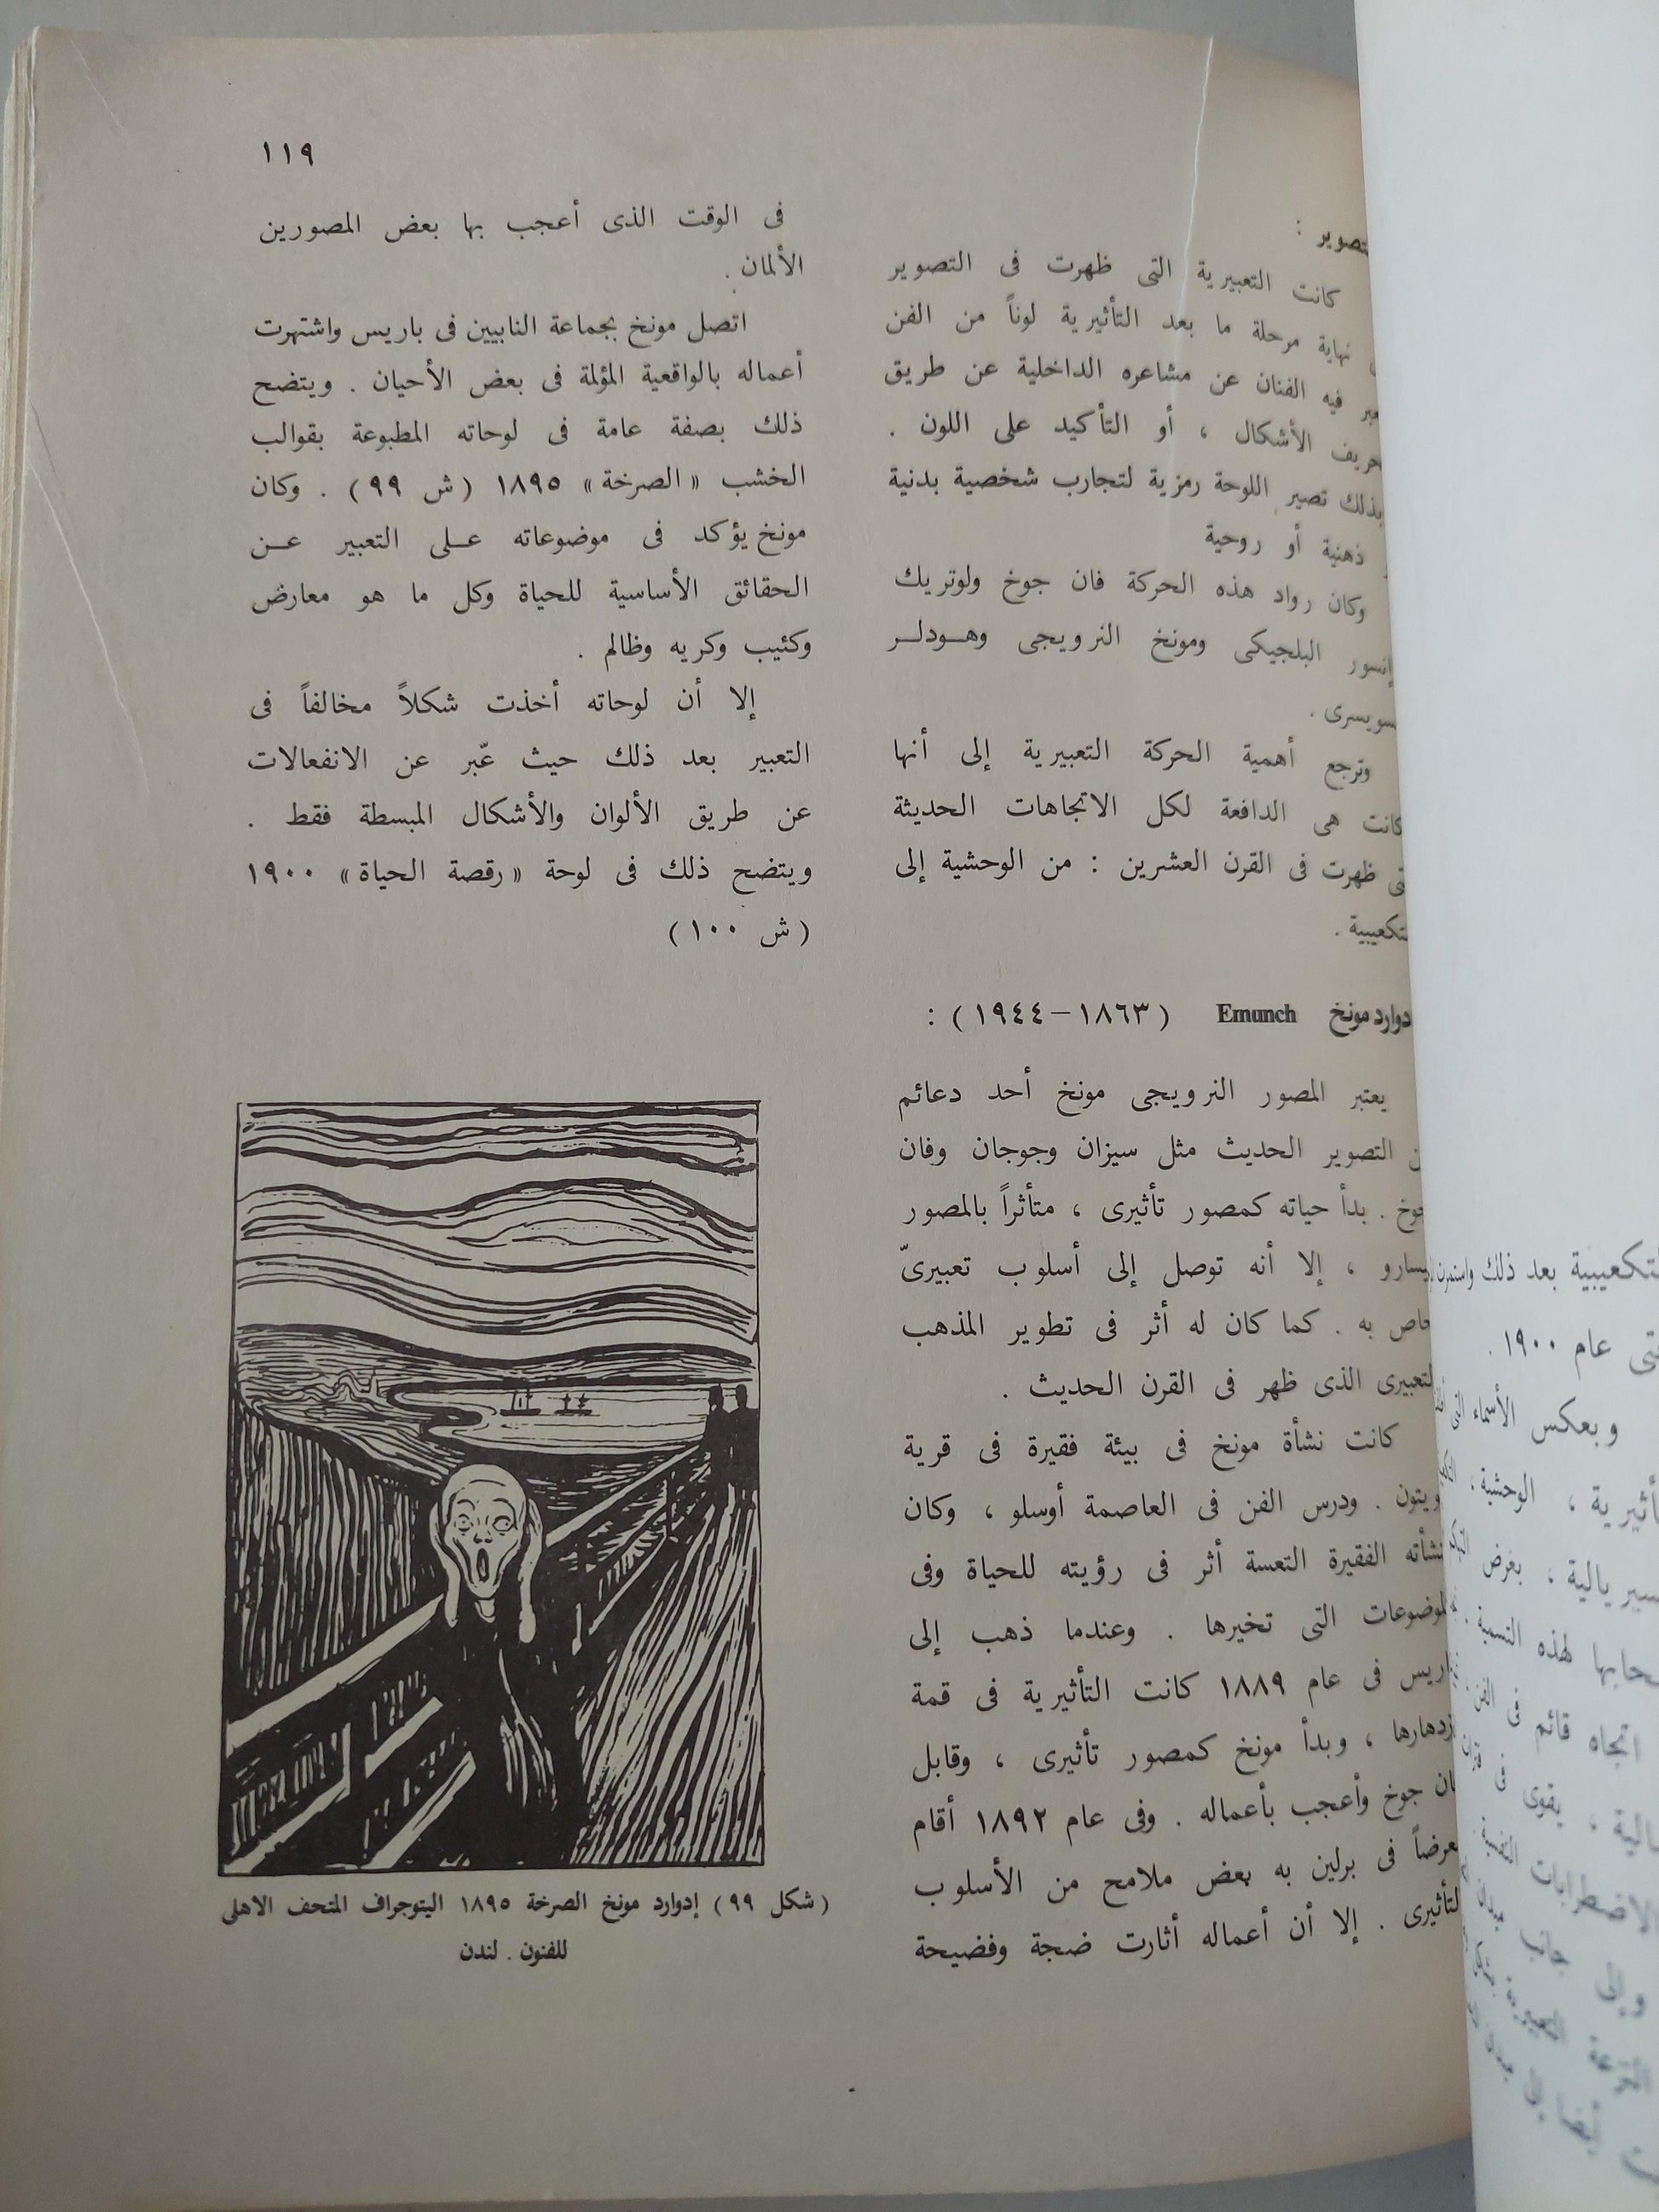 ١١٩
التصوير :
كانت التعبيرية التى ظهرت فى التصوير
نهاية مرحلة ما بعد التأثيرية لوناً من الفن
فيه الفنان عن مشاعره الداخلية عن طريق
تحريف الأشكال ، أو التأكيد على اللون .
بذلك تصير اللوحة رمزية لتجارب شخصية بدنية
ذهنية أو روحية
وكان رواد هذه الحركة فان جوخ ولوتريك
إنسور البلجيكى ومونخ النرويجى وهـودلـر
السويسرى .
وترجع أهمية الحركة التعبيرية إلى أنها
كانت هى الدافعة لكل الاتجاهات الحديثة
التى ظهرت فى القرن العشرين : من الوحشية إلى
التكعيبية .
إدوارد مونخ Emunch (١٨٦٣–١٩٤٤) :
يعتبر المصور النرويجى مونخ أحد دعائم
التصوير الحديث مثل سيزان وجوجان وفان
جوخ . بدأ حياته كمصور تأثيرى ، متأثراً بالمصور
بيسارو ، إلا أنه توصل إلى أسلوب تعبيرىّ
خاص به . كما كان له أثر فى تطوير المذهب
التعبيرى الذى ظهر فى القرن الحديث .
كانت نشأة مونخ فى بيئة فقيرة فى قرية
. ودرس الفن فى العاصمة أوسلو ، وكان
لنشأته الفقيرة التعسة أثر فى رؤيته للحياة وفى
الموضوعات التى تخيرها . وعندما ذهب إلى
باريس فى عام ١٨٨٩ كانت التأثيرية فى قمة
ازدهارها ، وبدأ مونخ كمصور تأثيرى ، وقابل
فان جوخ وأعجب بأعماله . وفى عام ١٨٩٢ أقام
معرضاً فى برلين به بعض ملامح من الأسلوب
التأثيرى . إلا أن أعماله أثارت ضجة وفضيحة
فى الوقت الذى أعجب بها بعض المصورين
الألمان .
اتصل مونخ بجماعة النابيين فى باريس واشتهرت
أعماله بالواقعية المؤلمة فى بعض الأحيان . ويتضح
ذلك بصفة عامة فى لوحاته المطبوعة بقوالب
الخشب «الصرخة» ١٨٩٥ (ش ٩٩) . وكان
مونخ يؤكد فى موضوعاته عـلى التعبير عـن
الحقائق الأساسية للحياة وكل ما هو معارض
وكئيب وكريه وظالم .
إلا أن لوحاته أخذت شكلاً مخالفاً فى
التعبير بعد ذلك حيث عّبر عن الانفعالات
عن طريق الألوان والأشكال المبسطة فقط .
ويتضح ذلك فى لوحة «رقصة الحياة» ١٩٠٠
(ش ١٠٠)
(شكل ٩٩) إدوارد مونخ الصرخة ١٨٩٥ اليتوجراف المتحف الاهلى
للفنون . لندن
التكعيبية بعد ذلك
عام ١٩٠٠ .
وبعكس الأسماء التى
الوحشية ،
بغرض
لهذه التسمية .
اتجاه قائم فى الفن
يقوى فى